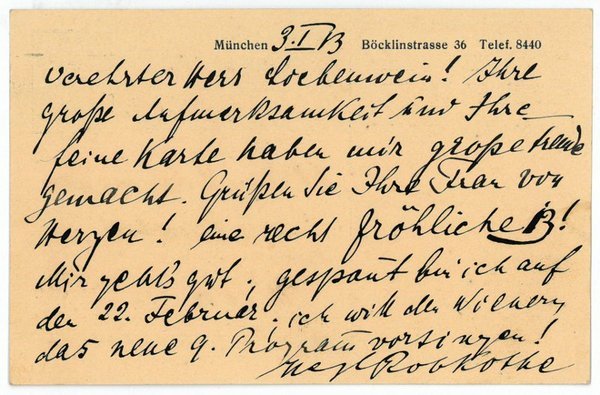 München 3.I.13 Böcklinstrasse 36 Telef. 8440
verehrter Herr Loebenwein! Ihre
große Aufmerksamkeit und Ihre
feine Karte haben mir große Freude
gemacht. Grüßen Sie Ihre Frau von
Herzen! eine recht fröhliche 13!
Mir geht's gut, gespan̅t bin ich auf
den 22. Februar. ich will den Wienern
das neue 9. Program̅ vorsingen!
Rob Kothe